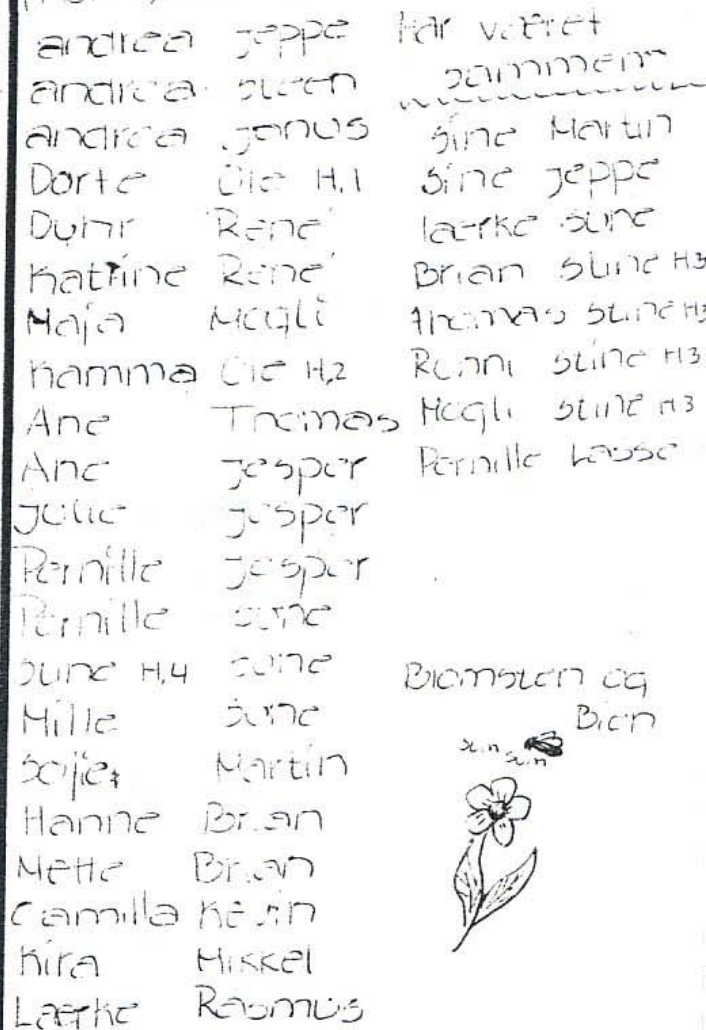 andrea Jeppe
andrea steen
andrea Janus
Dorte Ole H.1
Duhr René
Katrine René
Maja Mogli
Kamma Ole H.2
Ane Thomas
Ane Jesper
Julie Jesper
Pernille Jesper
Pernille sune
stine H.4 sune
Mille sune
sofie Martin
Hanne Brian
Mette Brian
Camilla Kevin
Kira Mikkel
Lærke Rasmus
Har været
sammen
Sine Martin
Sine Jeppe
lærke sune
Brian stine H3
Thomas stine H3
Ronni stine H3
Mogli stine H3
Pernille Lasse
Blomsten og
Bien
sum
sum